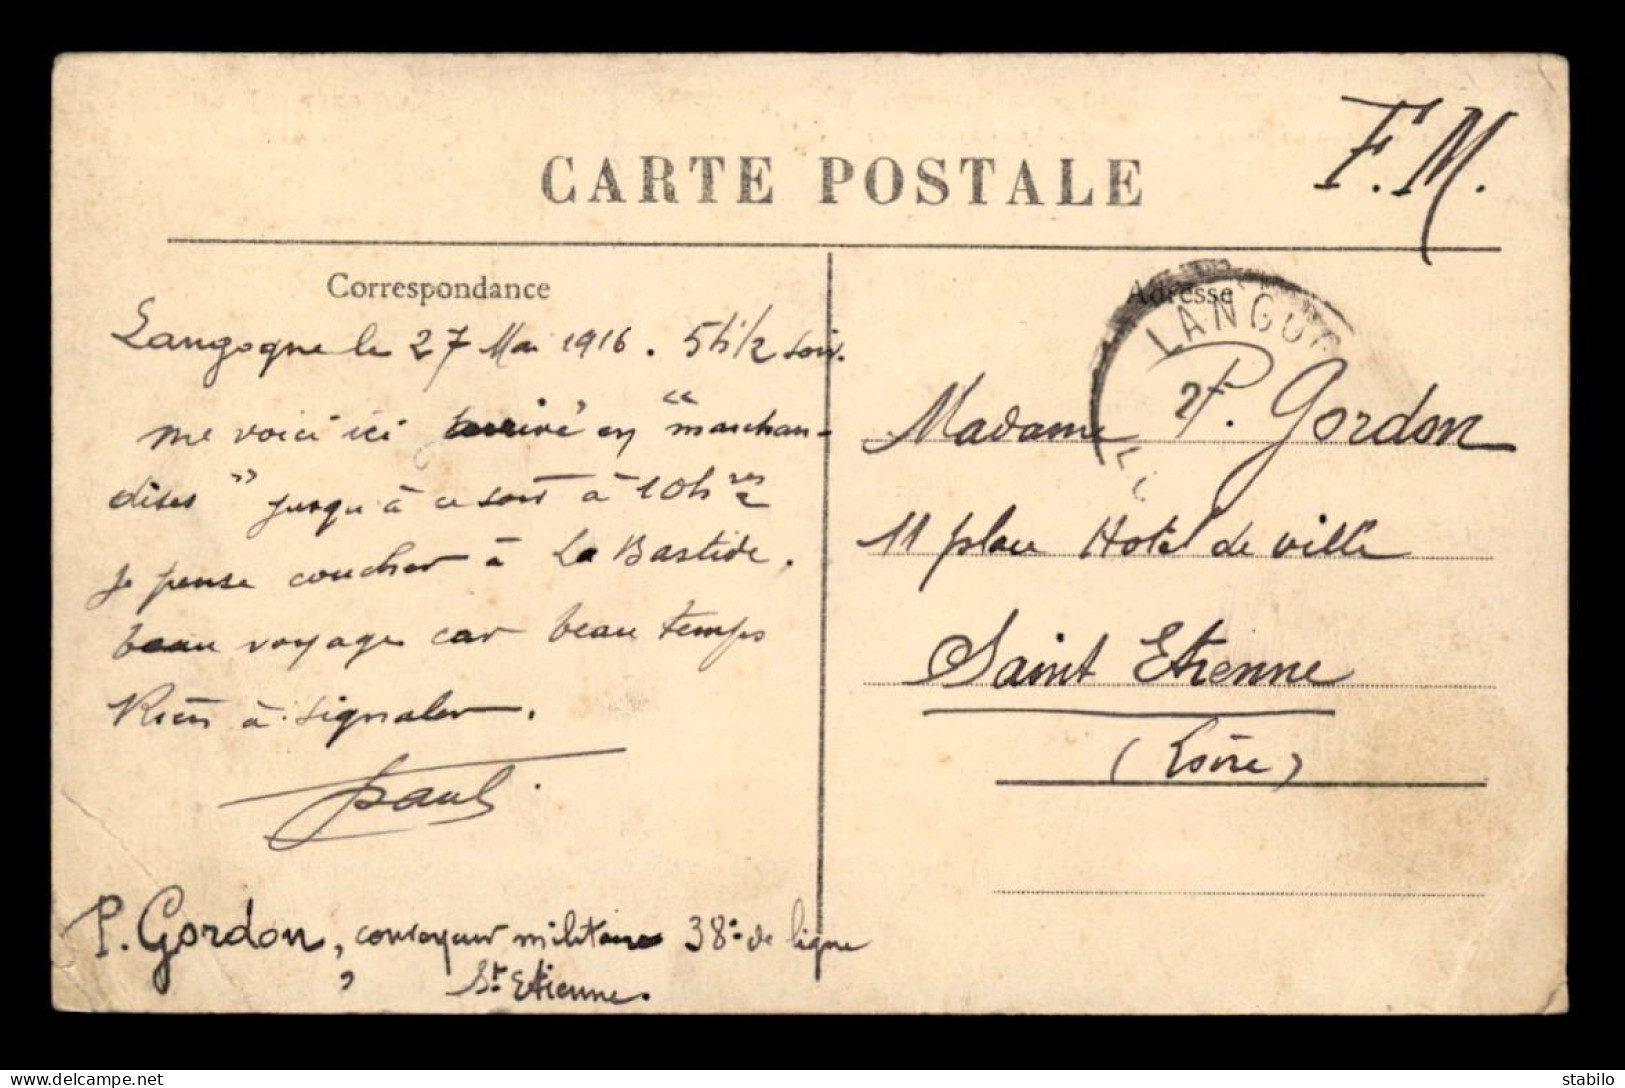 F.M.
CARTE POSTALE
Correspondance
Langogne le 27 Mai 1916. 5h1/2 soir.
me voici ici arrivé en "marchan-
dises" jusqu'à ce soir à 10h res
je pense coucher à La Bastide.
beau voyage car beau temps
Rien à signaler.
Paul.
P. Gordon, convoyeur militaire 38e de ligne
St Etienne.
Adresse
LANGO
27
Madame P. Gordon
11 place Hotel de ville
Saint Etienne
(Loire)
delcampe.net
stabilo